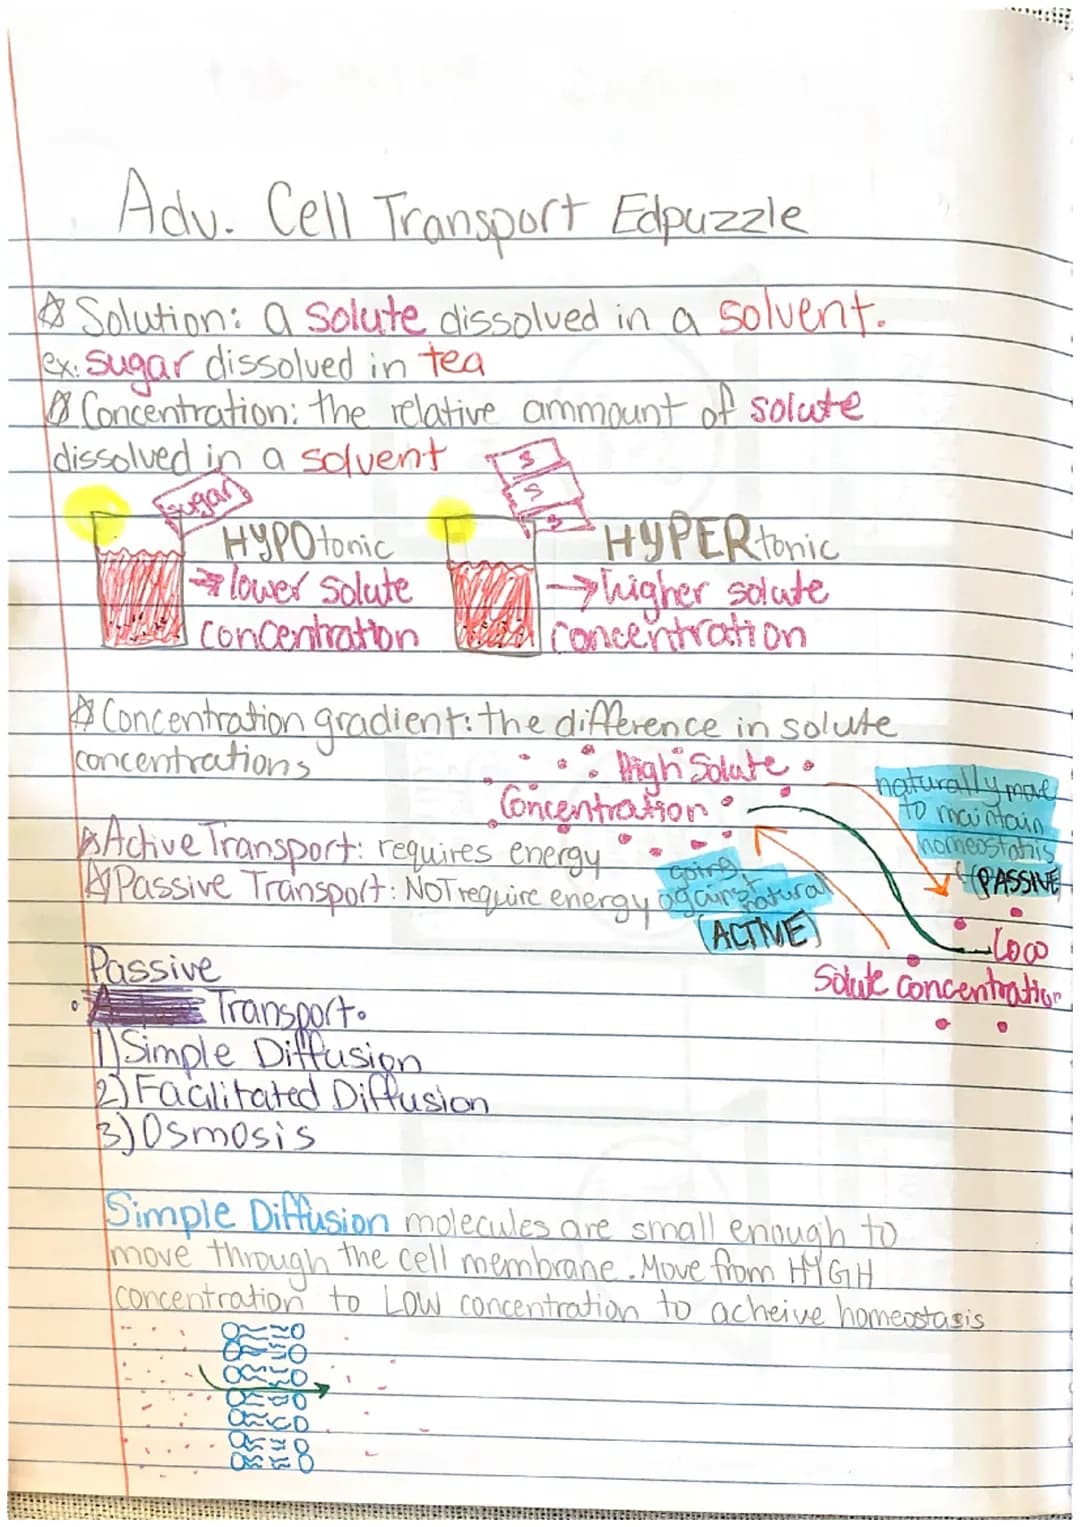 Adv. Cell Transport Edpuzzle
☆ Solution: a solute dissolved in a solvent.
ex. sugar dissolved in tea
☆ Concentration: the relative ammount of solute
dissolved in a solvent
sugar
S
S
S
HYPOtonic
→ lower solute
concentration
HYPERtonic
→ higher solute
concentration
☆ Concentration gradient: the difference in solute
concentrations
High Solute
Concentration
naturally move
to maintain
homeostatis
(PASSIVE)
☆ Active Transport: requires energy
☆ Passive Transport: NOT require energy
going
against natural
(ACTIVE)
Low
Solute concentration
Passive
• Transport.
1) Simple Diffusion
2) Facilitated Diffusion
3) Osmosis
Simple Diffusion molecules are small enough to
move through the cell membrane. Move from HIGH
concentration to LOW concentration to acheive homeostasis